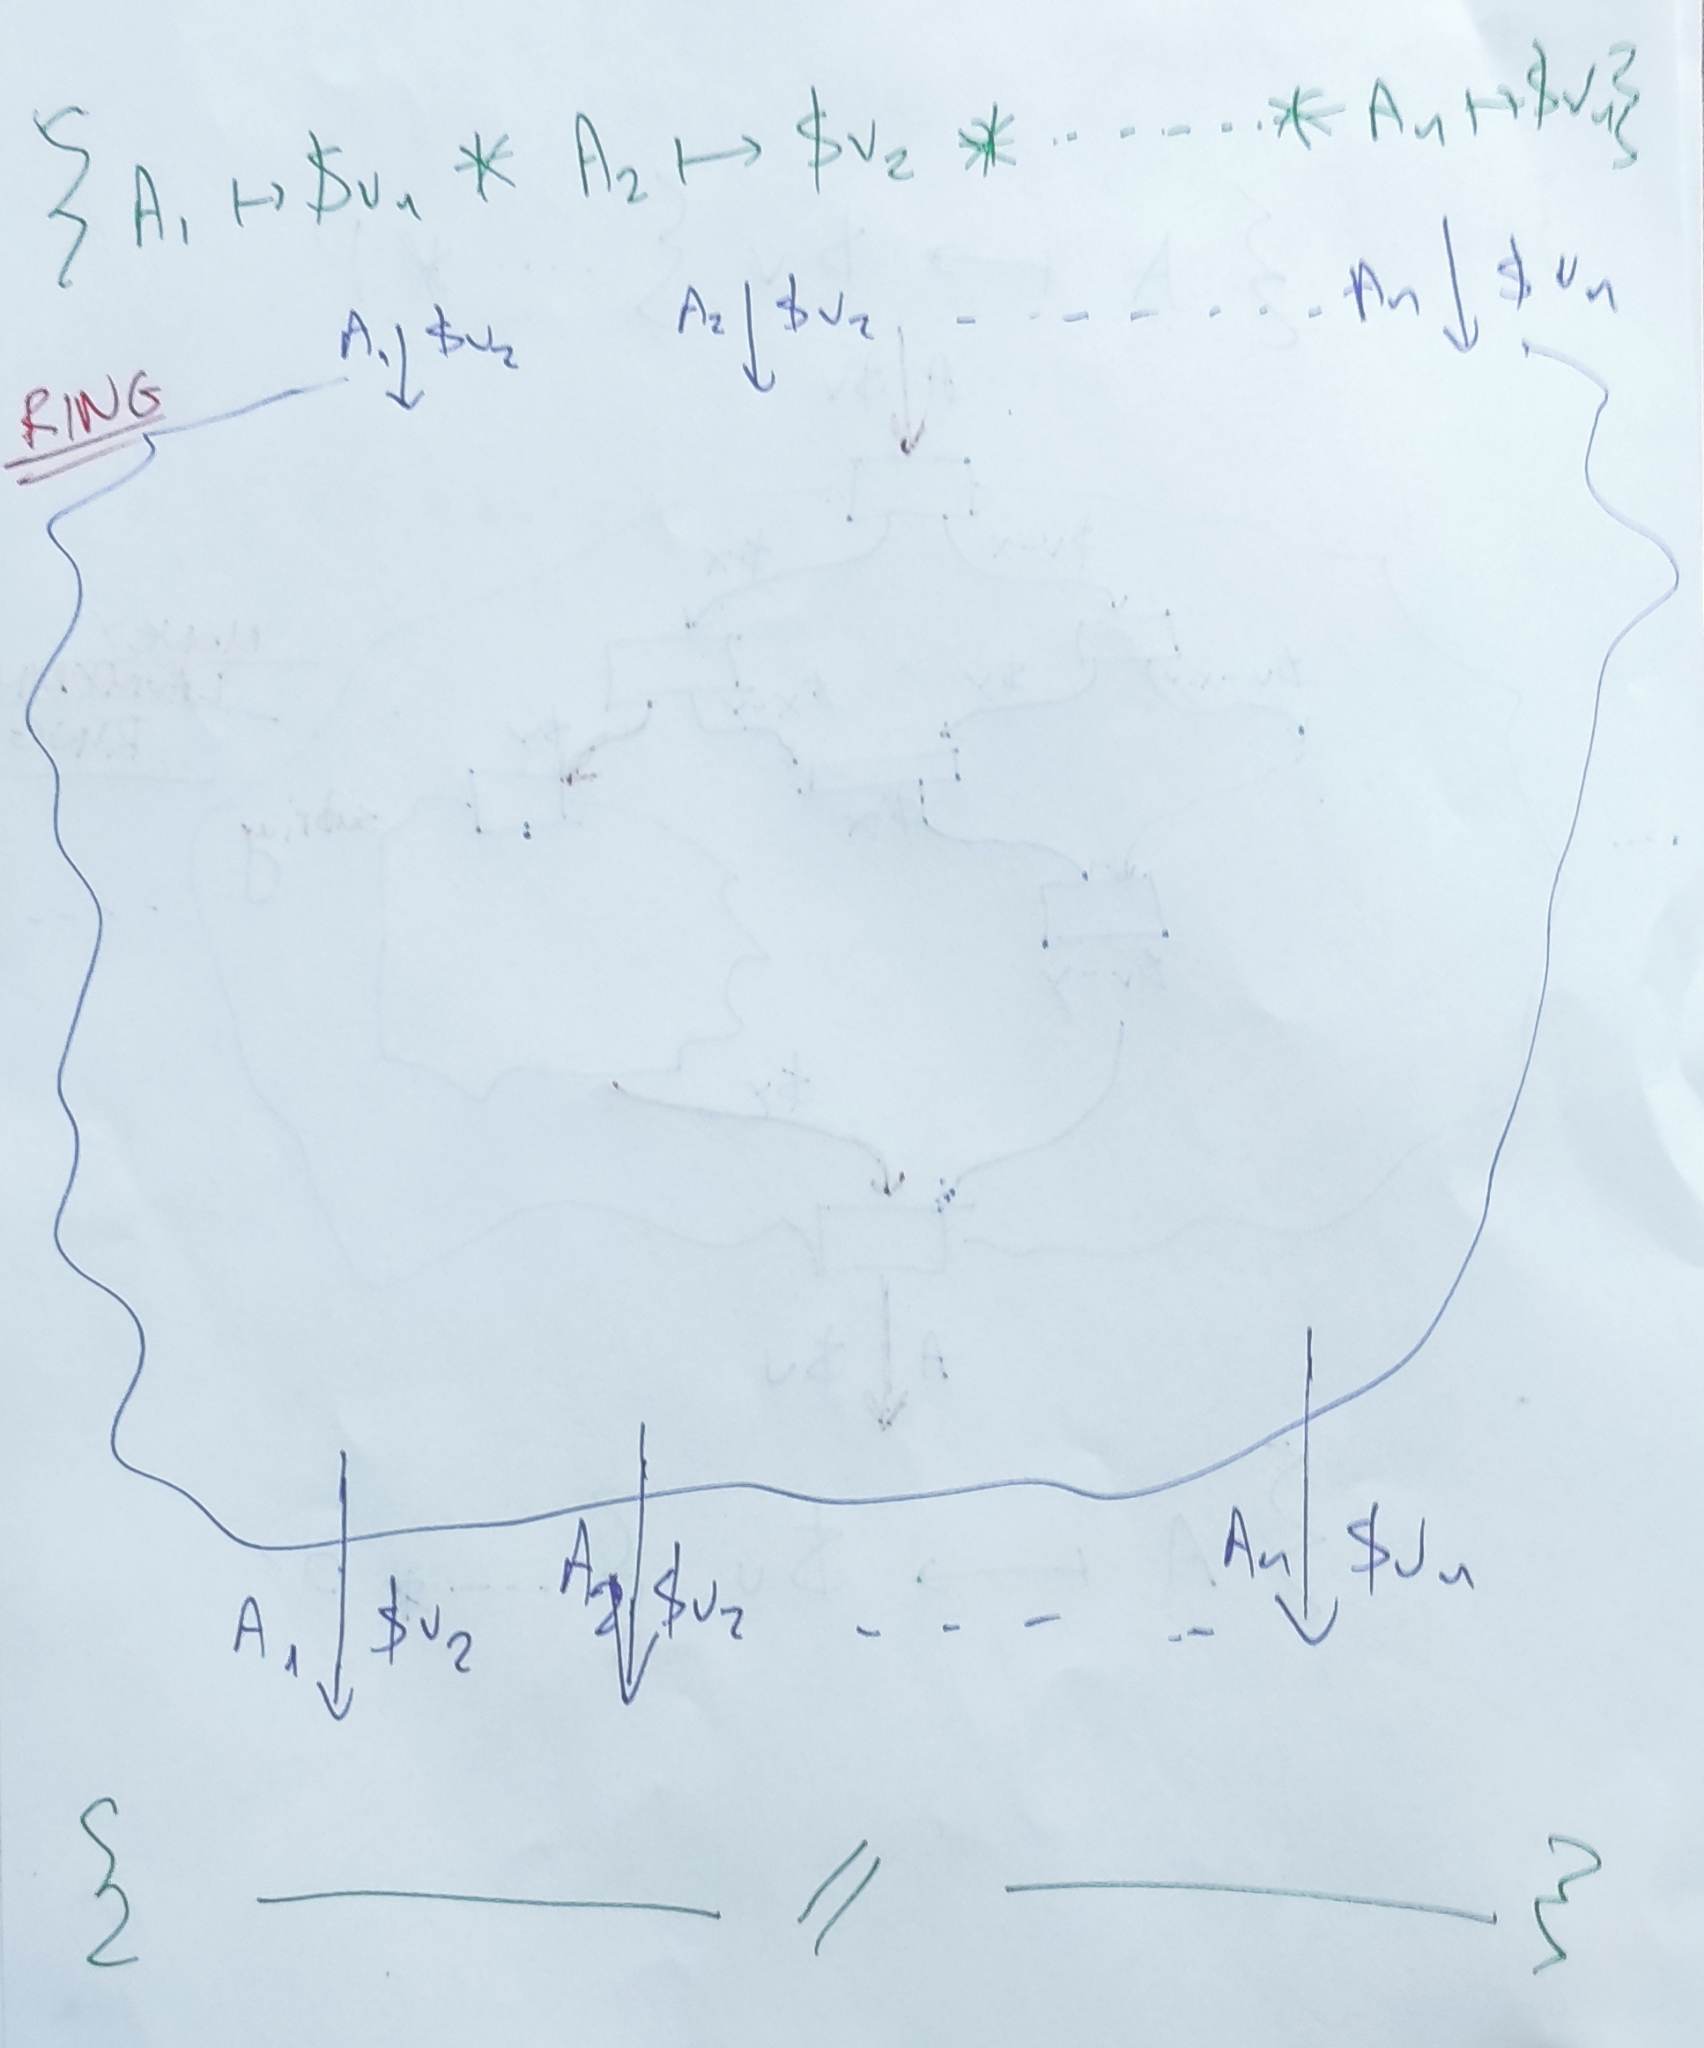 { A₁ ↦ $v₁ * A₂ ↦ $v₂ * ....... * Aₙ ↦ $vₙ }
A₁ ↓ $v₂ A₂ ↓ $v₂ - - - - - - - Aₙ ↓ $vₙ
RING
A₁ ↓ $v₂ A₂ ↓ $v₂ - - - - - Aₙ ↓ $vₙ
{ —— // —— }